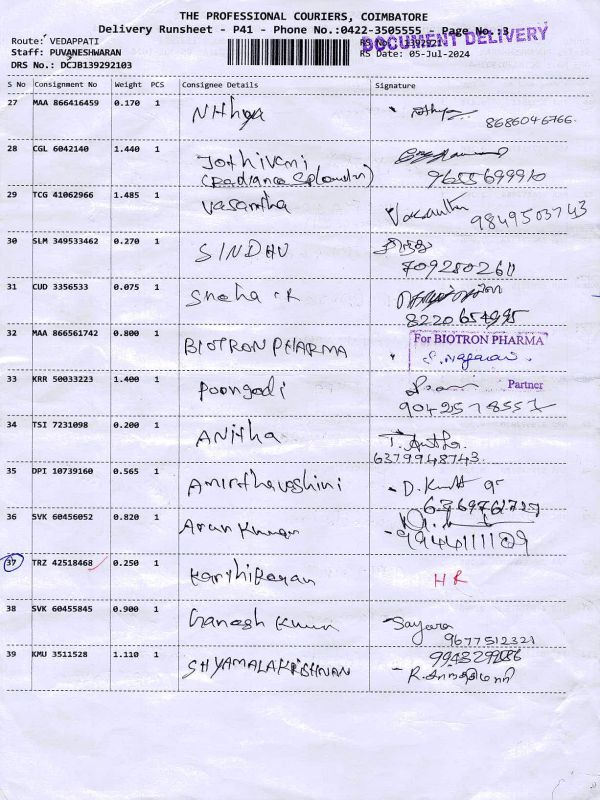 THE PROFESSIONAL COURIERS, COIMBATORE
Delivery Runsheet - P41 - Phone No.:0422-3505555 - Page No.:3
Route: VEDAPPATI
DOCUMENT DELIVERY
Staff: PUVANESHWARAN
RS Date: 05-Jul-2024
DRS No.: DCJB139292103
S No Consignment No Weight PCS Consignee Details Signature
27 MAA 866416459 0.170 1 Nithya
8686046766
28 CGL 6042140 1.440 1 Jothivani
(Radiance Splendor)
9655699910
29 TCG 41062966 1.485 1 Vasantha Vasantha
9849503743
30 SLM 349533462 0.270 1 SINDHU சிந்து
7092802611
31 CUD 3356533 0.075 1 Sneha .K
8220654995
32 MAA 866561742 0.800 1 BIOTRON PHARMA For BIOTRON PHARMA
Partner
33 KRR 50033223 1.400 1 Poongodi
34 TSI 7231098 0.200 1 Anitha
6379948743
35 DPI 10739160 0.565 1 Amirthavarshini
36 SVK 60456052 0.820 1 Arun Kumar
37 TRZ 42518468 0.250 1 Karthikeyan HR
38 SVK 60455845 0.900 1 Ganesh Kumar Sayara
9677512321
39 KMU 3511528 1.110 1 SHYAMALAKRISHNAN